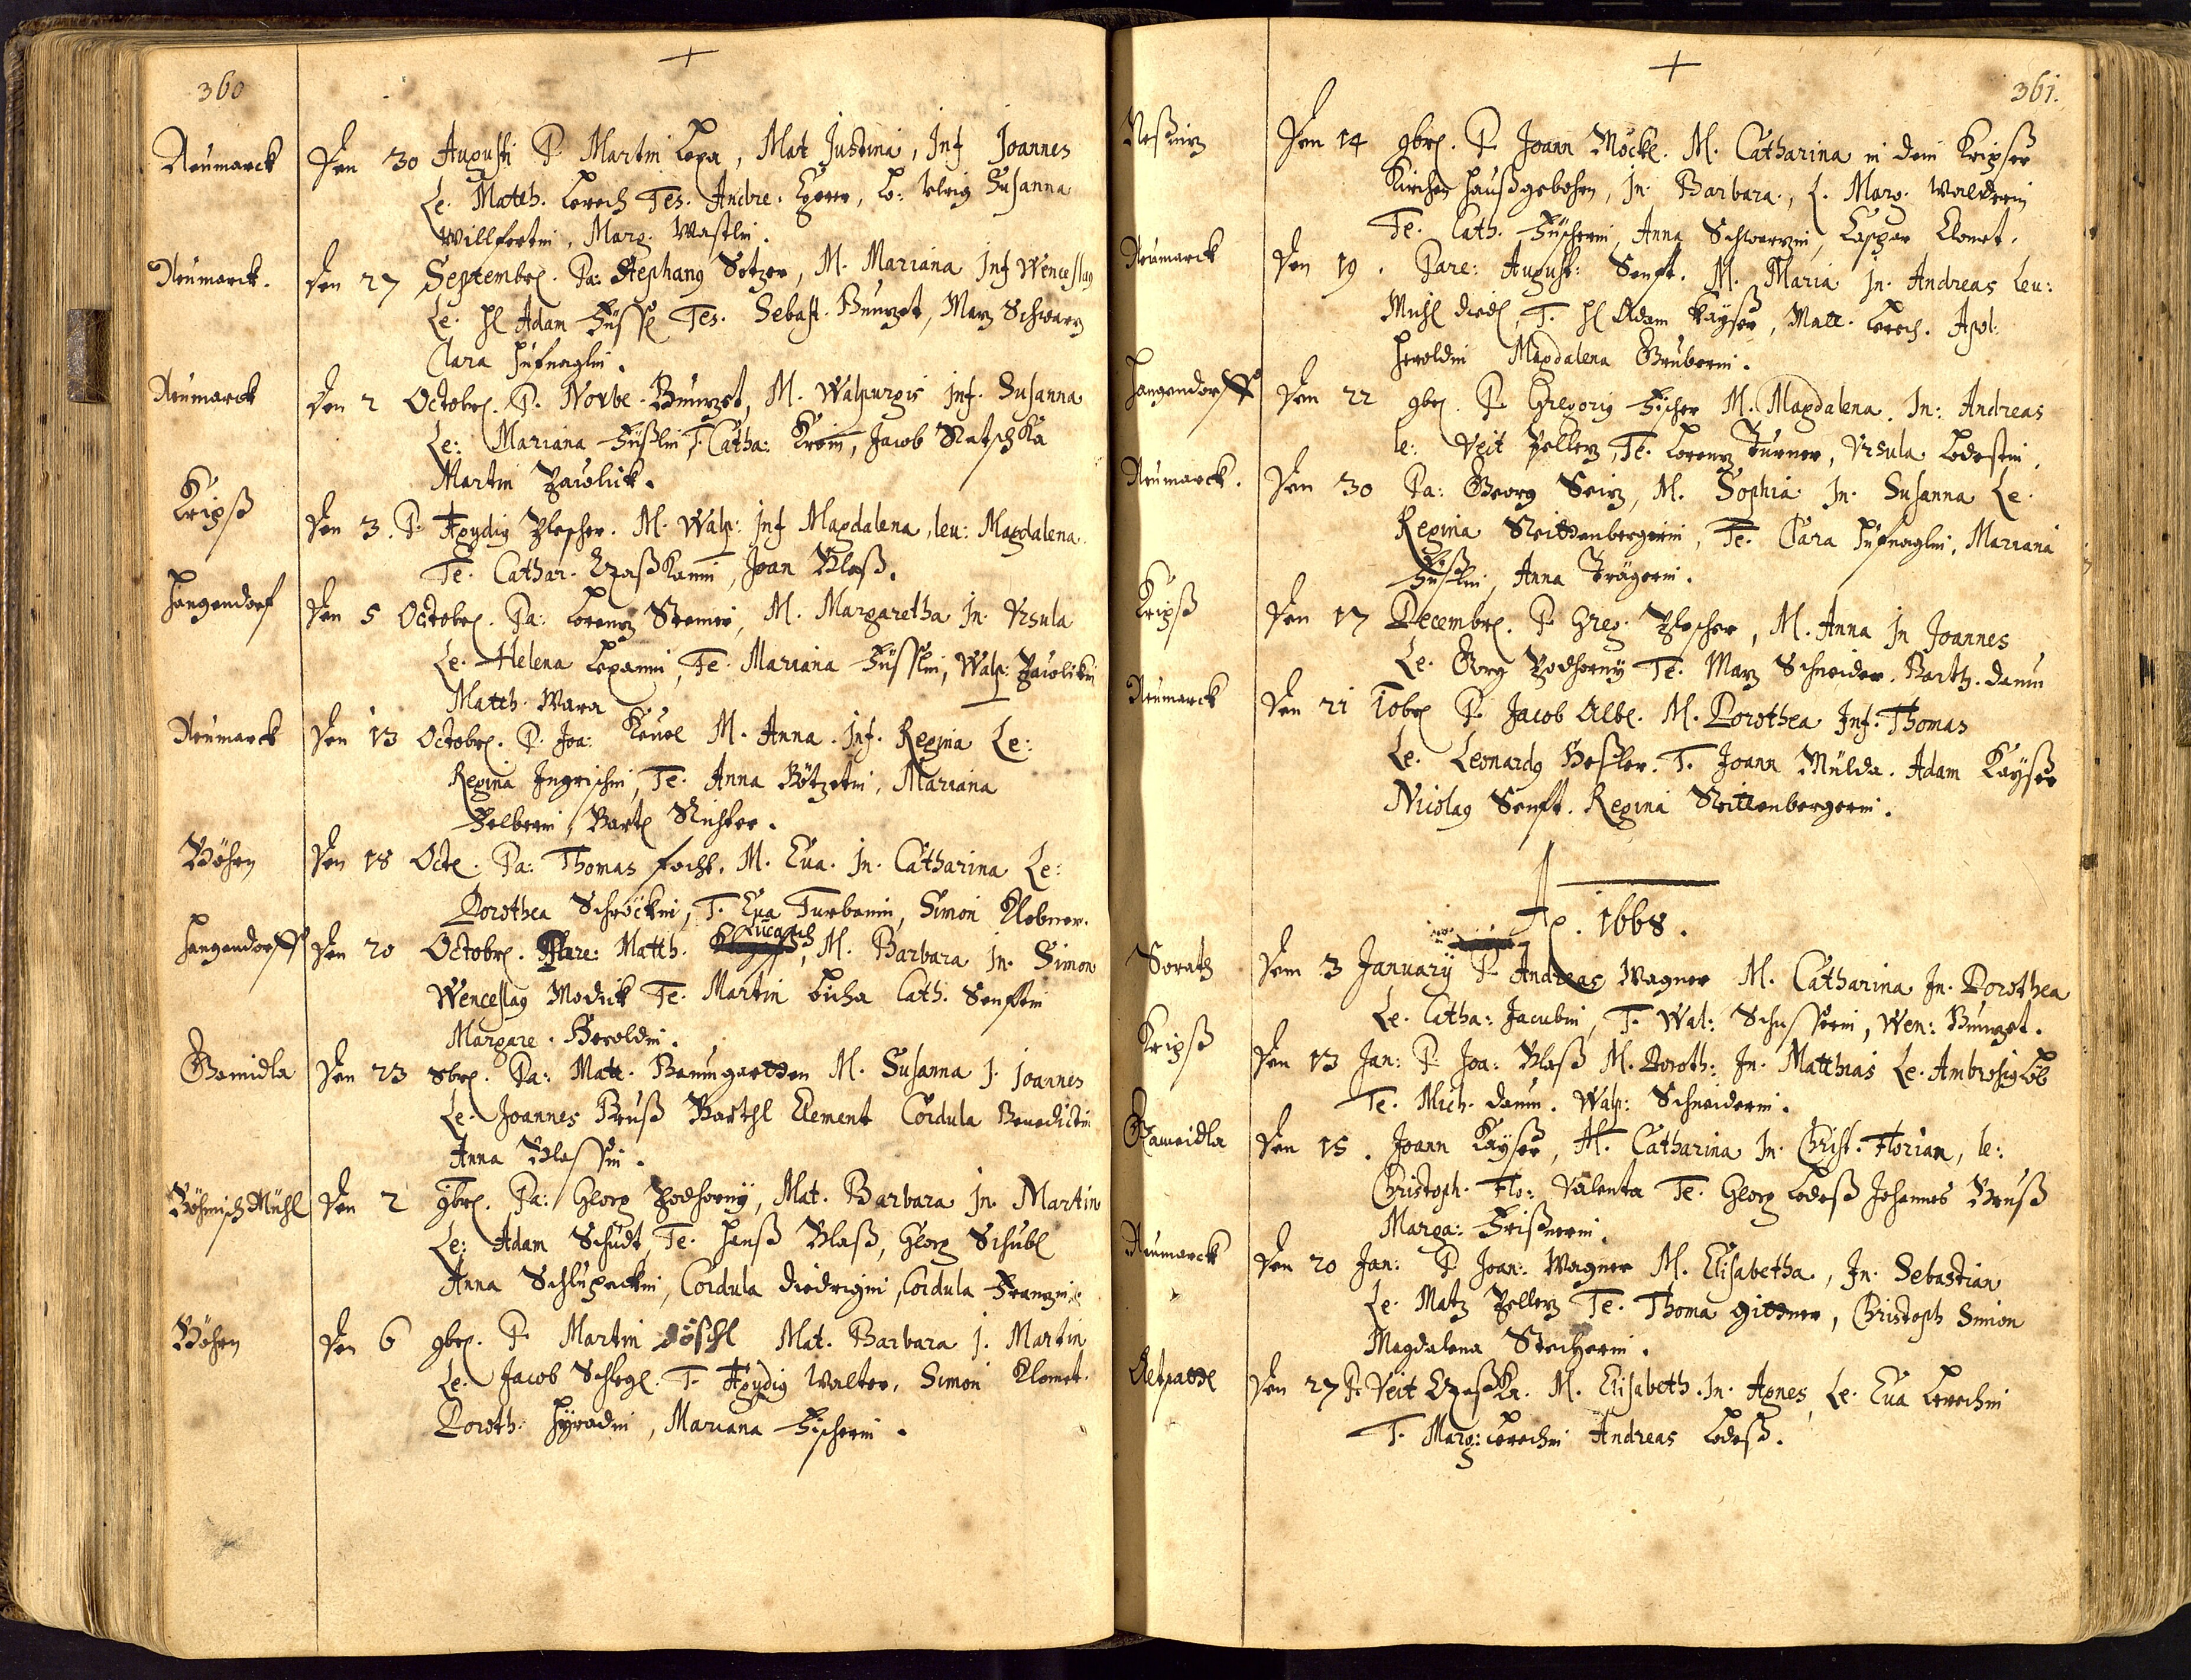 360
Neumarck Den 30 Augusti P. Martin Lexa, Mat Justina, Inf Joannes
Le. Matth. Lerch Tes. Andre. , Lo: Ulrig Susanna
Willfertin, Marg. Wastlin.
Neumarck. Den 27 Septembr. Pa: Stephang Setzer, M. Mariana Inf Wenceslag
Le. Hl Adam Füssl Tes. Sebast. Bunzet, Marx Schwarz
Clara Hüfnaglin.
Neumarck Den 2 Octobr. P. Norbe. Bunzet, M. Walpurgis inf. Susanna
Le: Mariana Füßlin T. Catha: , Jacob Ratschka
Martin Pawlick.
Kripß Den 3. P. Ægydig Plescher. M. Walp: Inf Magdalena, leu: Magdalena
Te. Cathar. , Joan Blaß.
Hangendorf Den 5 Octobr. Pa: Lorentz Steiner, M. Margaretha In. Ursula
Le. Helena Lexanin, Te. Mariana Füsslin, Walp: Pawlikin
Matth. Wara
Neumarck Den 13 Octobr. P. Joa: M. Anna. Inf. Regina Le:
Regina Ingrischin, Te. Anna Bötzetin, Mariana
Felberin, Bartl Richter.
Böhen Den 18 Octl. Pa: Thomas focht. M. Eua. In. Catharina Le:
Dorothea Schröckin, T. Eua Turbanin, Simon Klebner.
Hangendorff Den 20 Octobr. Pare: Matth. Lucasch, M. Barbara In. Simon
Wenceslag Modick Te. Martin Licha Cath. Senftin
Margare. Beroldin.
Gamidla Den 23 8br. Pa: Matt. Baumgartten M. Susanna I. Joannes
Le. Joannes Pruß Barthl Element Cordula Benedictin
Anna Blassin.
Böhmisch Mühl Den 2 9br. Pa: Georg Podhorny, Mat. Barbara In. Martin
Le: Adam Schudt, Te. Hanß Blaß, Georg Schubl
Anna Schlupeckin, Cordula Diedrigin, Cordula Frantzin.
Böhen Den 6 9br. P. Martin döschl Mat. Barbara I. Martin
Le. Jacob Schlegl. T. Ægydig Walter, Simon Klomet.
Doroth: , Mariana Fischerin.
361.
Den 14 9br. P. Joann Möckl. M. Catharina in dem Kripser
Kirchen Hauß gebohren, In. Barbara., L. Marg. Walderin
Te. Cath. Fischerin, Anna Schwarzin, Caspar Klomet.
Neumarck Den 19. Pare: August: Senft. M. Maria In. Andreas Leu:
Michl Diedl, T. Hl Adam Kayser, Matt. Lerch. Apol:
Heroldin Magdalena Gruberin.
Hangendorff Den 22 9br. P. Gregorig Ficher M. Magdalena. In: Andreas
le: Veit Pellerz, Te. Lorentz Turner, Ursula Lodestin.
Neumarck. Den 30 Pa: Georg Seitz, M. Sophia In. Susanna Le.
Regina Reittenbergerin, Te. Clara Hüfnaglin, Mariana
Füßlin, Anna Trägerin.
Kripß Den 17 Decembr. P. Greg. Plescher, M. Anna In Joannes
Le. Görg Podhorny Te. Marx Schneider. Barth. Damm
Neumarck Den 21 10br P. Jacob Albl. M. Dorothea Inf. Thomas
Le. Leonardg Heßler. T. Joann Mülda. Adam Kayser
Nicolag Senft. Regina Reittenbergerin.
Ao. 1668.
Sorath Dem 3 January P. Andreas Wagner M. Catharina In. Dorothea
Le. Catha: Jacubin, T. Wal: Schusserin, Wen: Bunzet.
Kripß Den 13 Jan: P. Joa: Blaß M. Doroth: In. Matthias Le. Ambrosig Löb
Te. Mich. Damm. Walp: Schneiderin.
Gaweidla Den 15. Joann Kayser, M. Catharina In. Christ. Florian, le:
Christoph. Flo: Valenta Te. Georg Lodeß Johannes Bruß
Marga: Frißnerin.
Neumarck Den 20 Jan: P. Joan: Wagner M. Elisabetha, In. Sebastian
Le. Matz Pellerz Te. Thoma gittner, Christoph Simon
Magdalena Stecherin.
Den 27 P. Veit M. Elisabeth. In. Agnes, Le. Eua Lerchin
T. Marg: Lerchin Andreas Lodeß.